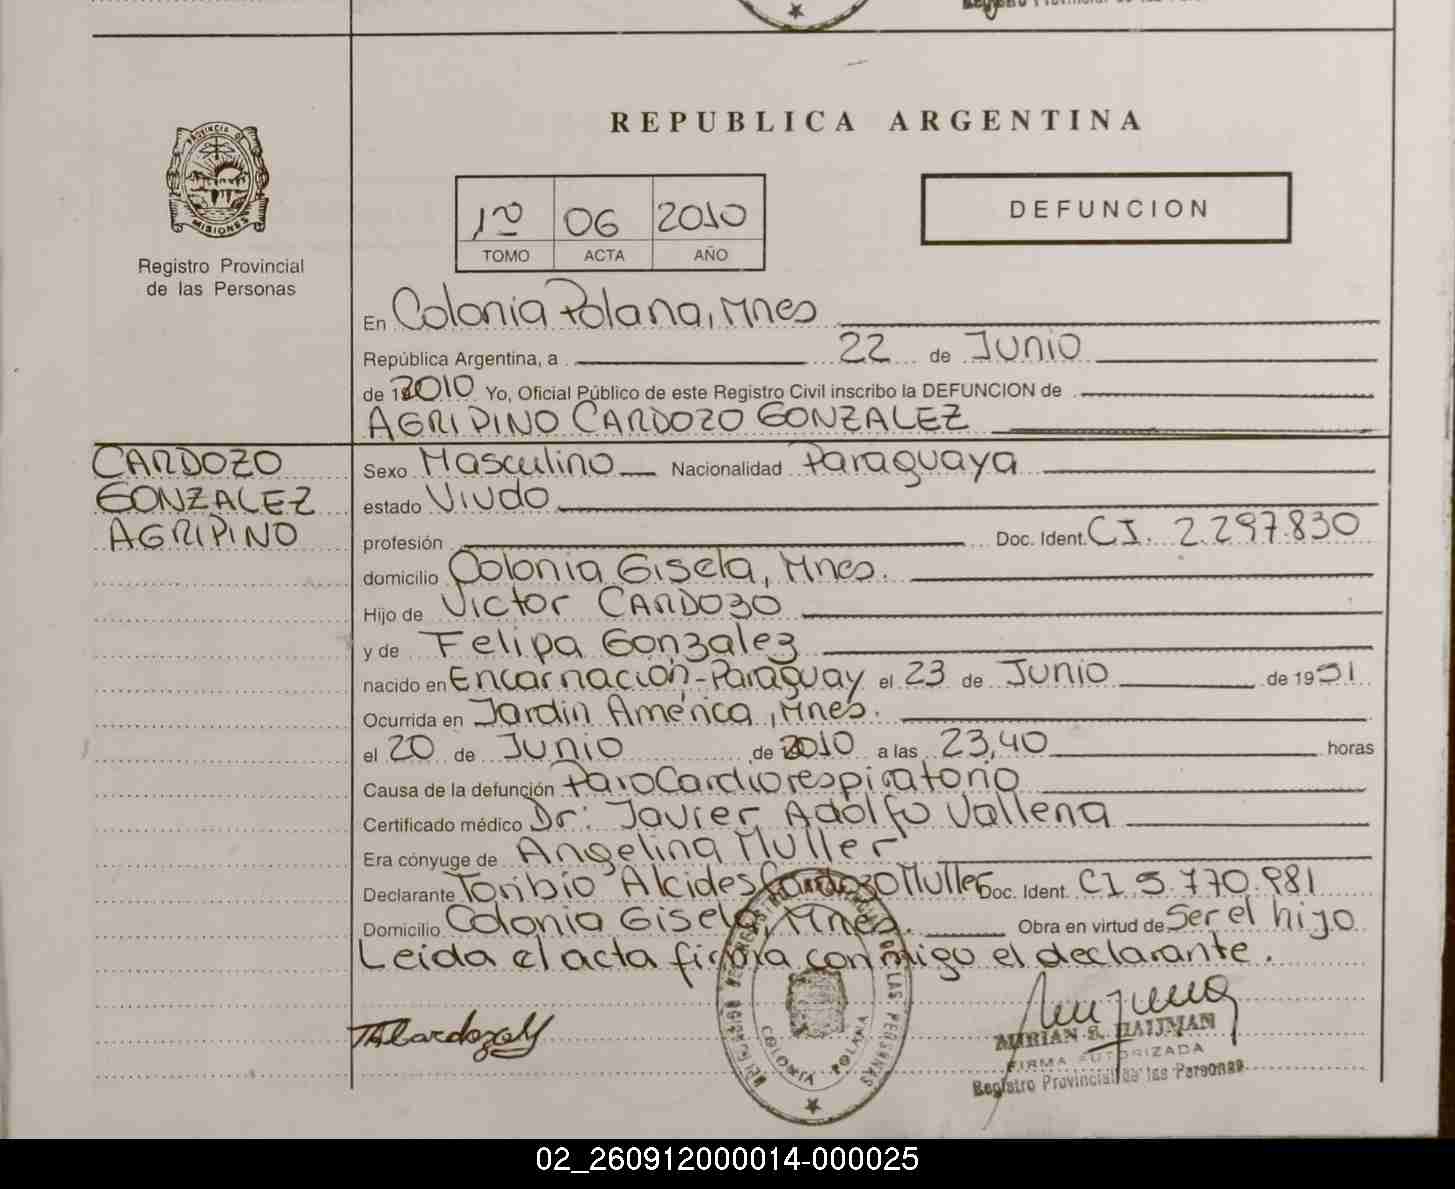 Registro Provincial de las Personas
REPUBLICA ARGENTINA
PROVINCIA DE
MISIONES
Registro Provincial
de las Personas
1º 06 2010
TOMO ACTA AÑO
DEFUNCION
En Colonia Polana, Mnes
República Argentina, a 22 de Junio
de 2010 Yo, Oficial Público de este Registro Civil inscribo la DEFUNCION de
AGRIPINO CARDOZO GONZALEZ
CARDOZO
GONZALEZ
AGRIPINO
Sexo Masculino Nacionalidad Paraguaya
estado Viudo
profesión Doc. Ident. CI. 2.297.830
domicilio Colonia Gisela, Mnes.
Hijo de Victor CARDOZO
y de Felipa Gonzalez
nacido en Encarnación-Paraguay el 23 de Junio de 1931
Ocurrida en Jardín América, Mnes.
el 20 de Junio de 2010 a las 23,40 horas
Causa de la defunción Paro Cardiorespiratorio
Certificado médico Dr: Javier Adolfo Vallena
Era cónyuge de Angelina Muller
Declarante Toribio Alcides Cardozo Muller Doc. Ident. CI 5.770.981
Domicilio Colonia Gisela, Mnes. Obra en virtud de Ser el hijo
Leida el acta firma conmigo el declarante.
COLONIA POLANA
MIRIAN S. HAUMAN
FIRMA AUTORIZADA
Registro Provincial de las Personas
02_260912000014-000025